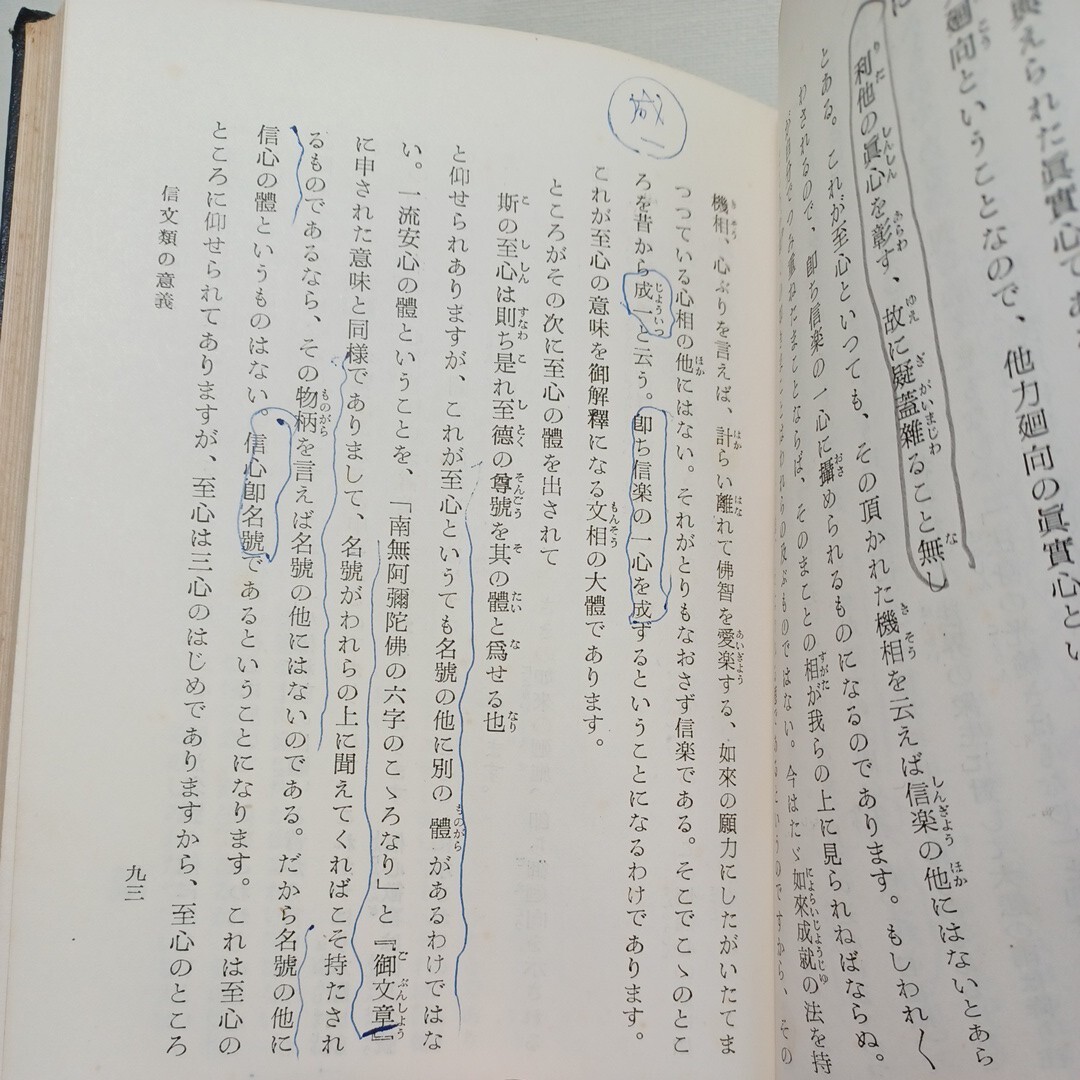 與えられた眞實心であ
廻向ということなので、他力廻向の眞實心とい
に
利他の眞心を彰す、故に疑蓋雜ること無し
とある。これが至心といつても、その頂かれた機相を云えば信楽の他にはないとあら
わされるので、卽ち信楽の一心に攝められるものになるのであります。もしわれ〱
が自分でつみ重ねたまことならば、そのまことの相が我らの上に見られねばならぬ。
今はたゞ如來成就の法を持
成一
機相、心ぶりを言えば、計らい離れて佛智を愛楽する、如來の願力にしたがいたてま
つつている心相の他にはない。それがとりもなおさず信楽である。そこでこゝのとこ
ろを昔から成一と云う。卽ち信楽の一心を成ずるということになるわけであります。
これが至心の意味を御解釋になる文相の大體であります。
ところがその次に至心の體を出されて
斯の至心は則ち是れ至德の尊號を其の體と爲せる也
と仰せられありますが、これが至心というても名號の他に別の體があるわけではな
い。一流安心の體ということを、「南無阿彌陀佛の六字のこゝろなり」と『御文章』
に申された意味と同様でありまして、名號がわれらの上に聞えてくればこそ持たされ
るものであるなら、その物柄を言えば名號の他にはないのである。だから名號の他に
信心の體というものはない。信心卽名號であるということになります。これは至心の
ところに仰せられてありますが、至心は三心のはじめでありますから、至心のところ
信文類の意義
九三